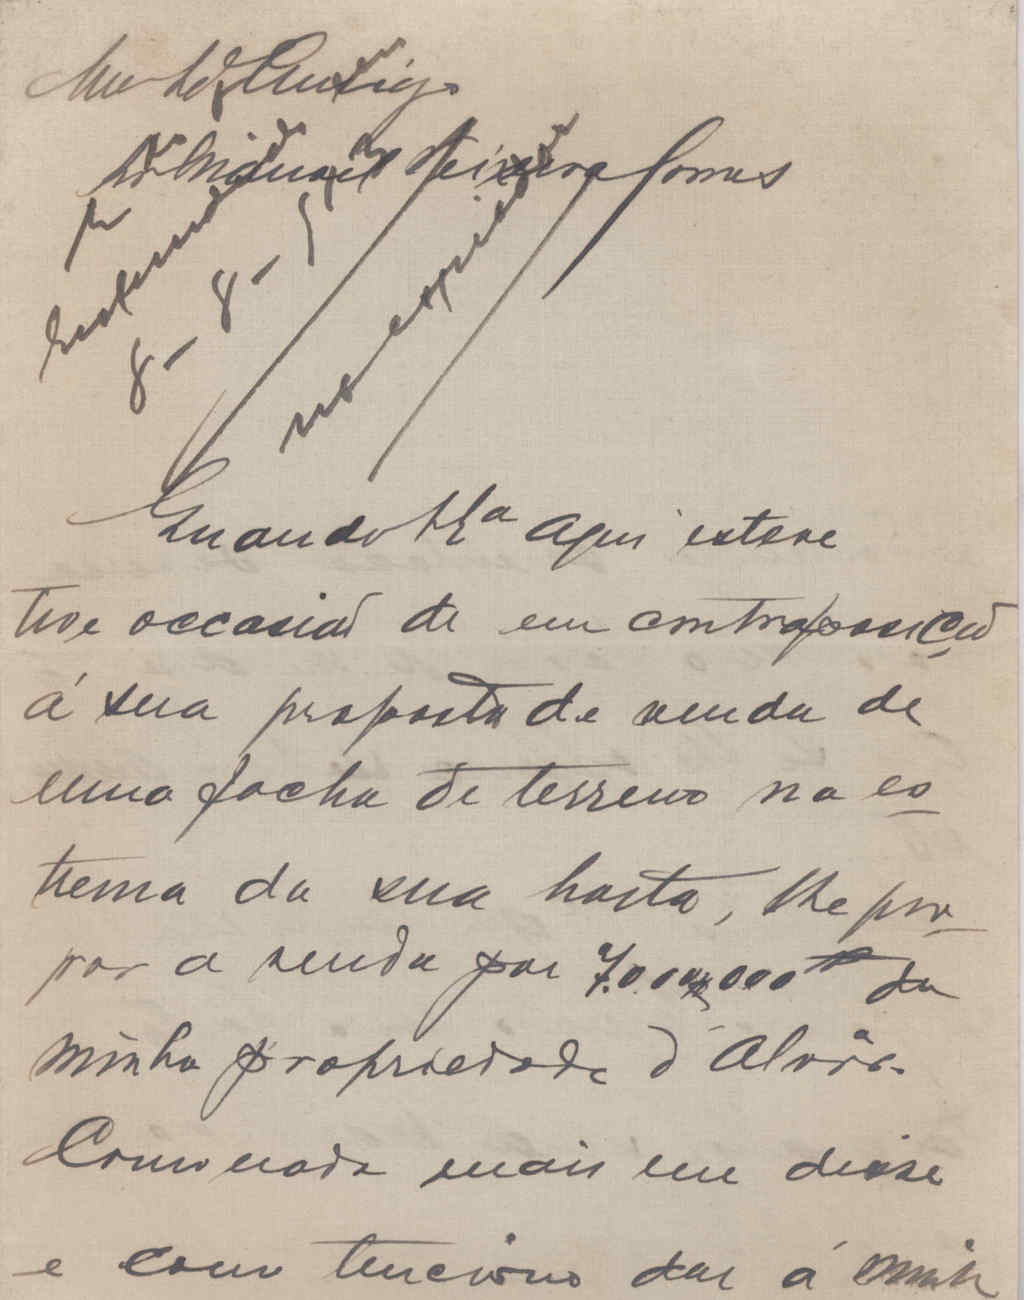 Meu Exº Amigo
Sr. Manuel Teixeira Gomes
8-8-
no expried
Quando V Exª aqui esteve
tive occasião de em contraposição
á sua proposta de venda de
uma facha de terreno na es-
trema da sua horta, lhe pro-
por a venda por 7.000$000 rs da
minha propriedade d'Alvôr.
Como nada mais me disse
e como tenciono dar á minh